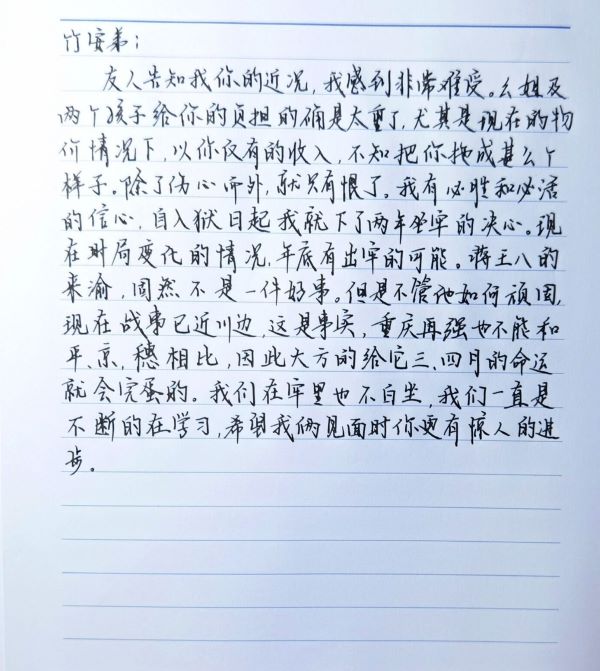 竹安弟：
友人告知我你的近况，我感到非常难受。幺姐及
两个孩子给你的负担的确是太重了，尤其是现在的物
价情况下，以你仅有的收入，不知把你拖成甚么个
样子。除了伤心而外，就只有恨了。我有必胜和必活
的信心，自入狱日起我就下了两年坐牢的决心。现
在时局变化的情况，年底有出牢的可能。蒋王八的
来渝，固然不是一件好事。但是不管他如何顽固，
现在战事已近川边，这是事实，重庆再强也不能和
平、京，穗相比，因此大方的给它三、四月的命运
就会完蛋的。我们在牢里也不白坐，我们一直是
不断的在学习，希望我俩见面时你更有惊人的进
步。